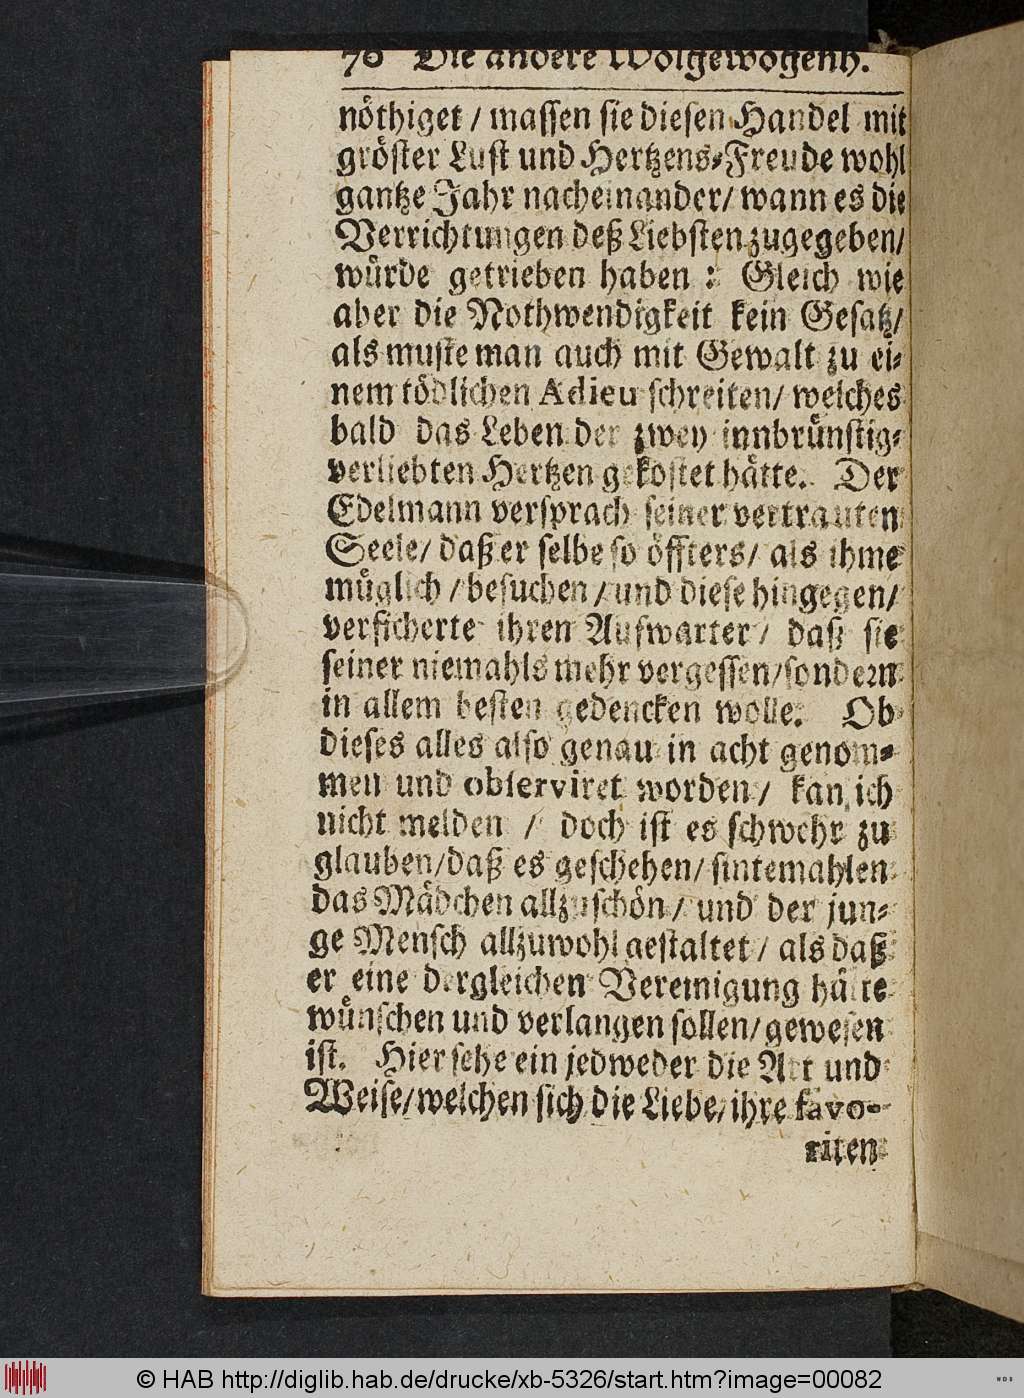 76 Die andere Wolgewogenh.
nöthiget / massen sie diesen Handel mit
gröster Lust und Hertzens-Freude wohl
gantze Jahr nacheinander / wann es die
Verrichtungen deß Liebsten zugegeben /
würde getrieben haben : Gleich wie
aber die Nothwendigkeit kein Gesatz /
als muste man auch mit Gewalt zu ei-
nem tödlichen Adieu schreiten / welches
bald das Leben der zwey innbrünstig-
verliebten Hertzen gekostet hätte. Der
Edelmann versprach seiner vertrauten
Seele / daß er selbe so öffters / als ihme
müglich / besuchen / und diese hingegen /
versicherte ihren Aufwarter / daß sie
seiner niemahls mehr vergessen / sondern
in allem besten gedencken wolle. Ob
dieses alles also genau in acht genom-
men und observiret worden / kan ich
nicht melden / doch ist es schwehr zu
glauben / daß es geschehen / sintemahlen
das Mädchen allzuschön / und der jun-
ge Mensch allzuwohl gestaltet / als daß
er eine dergleichen Vereinigung hätte
wünschen und verlangen sollen / gewesen
ist. Hier sehe ein jedweder die Art und
Weise / welchen sich die Liebe / ihre favo-
riten
© HAB http://diglib.hab.de/drucke/xb-5326/start.htm?image=00082